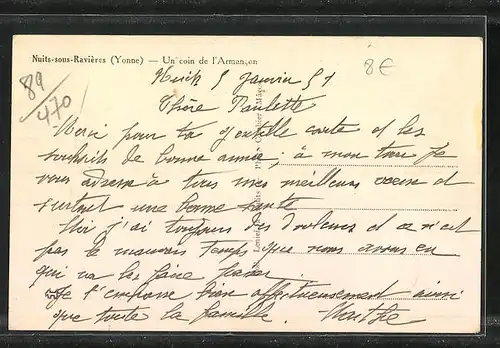 Nuits-sous-Ravières (Yonne) — Un coin de l'Armançon
8€
89/470
Nuits 5 Janvier 51
Chère Paulette
Merci pour ta gentille carte et les
souhaits de bonne année ; à mon tour je
vous adresse à tous mes meilleurs voeux et
surtout une bonne santé
Moi j'ai toujours des douleurs et ce n'est
pas le mauvais temps que nous avons en
qui va les faire passer.
Je t'embrasse bien affectueusement ainsi
que toute la famille. Marthe